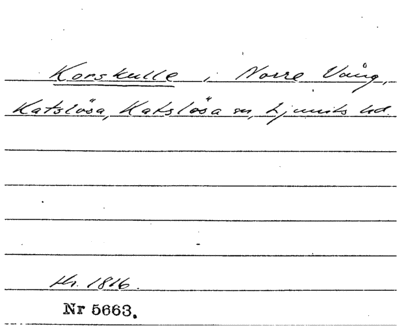 Korskulle, i Norre Vång,
Katslösa, Katslösa sn, Ljunits hd.
Nr 5663.